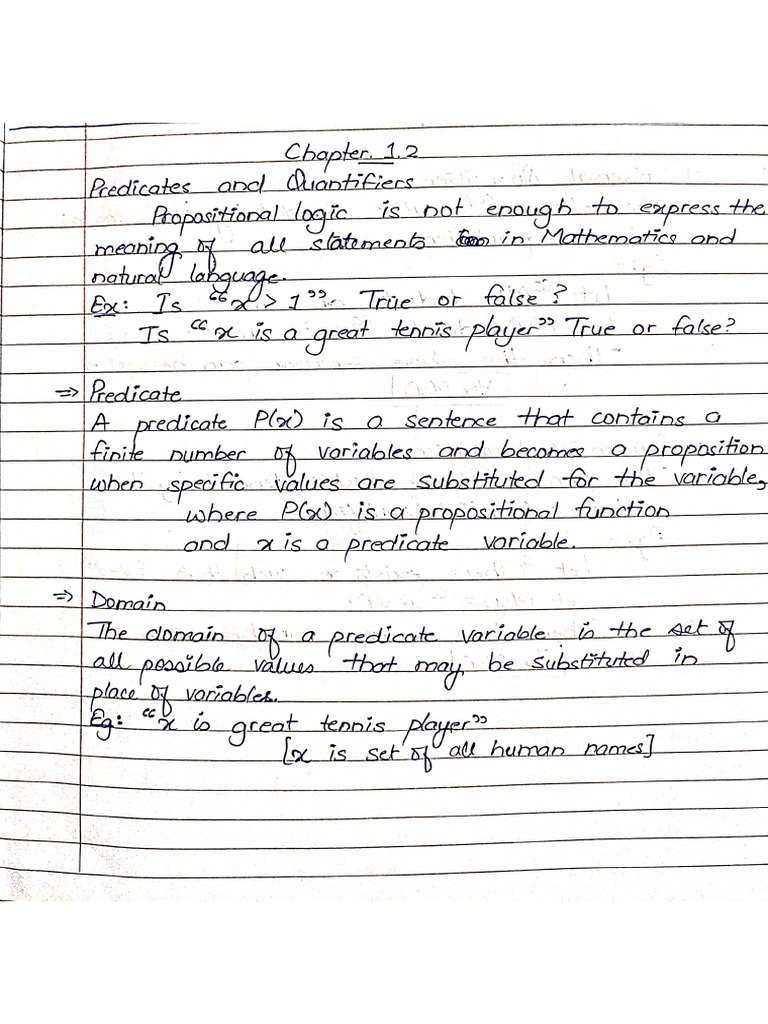 Chapter. 1.2
Predicates and Quantifiers
Propositional logic is not enough to express the
meaning of all statements in Mathematics and
natural language.
Ex: Is “x > 1”. True or false?
Is “x is a great tennis player” True or false?
⇒ Predicate
A predicate P(x) is a sentence that contains a
finite number of variables and becomes a proposition
when specific values are substituted for the variable,
where P(x) is a propositional function
and x is a predicate variable.
⇒ Domain
The domain of a predicate variable is the set of
all possible values that may be substituted in
place of variables.
Eg: “x is great tennis player”
[x is set of all human names]